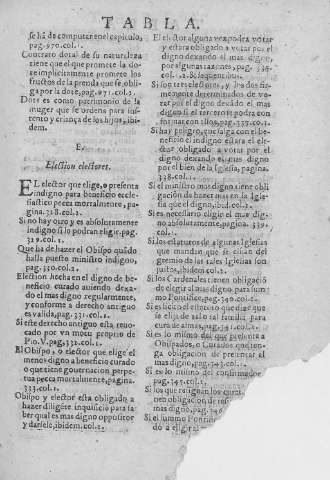 TABLA.
se ha de computar en el capitulo,
pag.970.col.1.
Contrato dotal de su naturaleza
tiene que el que promete la do-
te implicitamente promete los
fructos de la prenda que se obli-
ga por la dote, pag.971.col.2.
Dote es como patrimonio de la
muger que se ordena para sus-
tento y criança de los hijos, ibi-
dem.
E,
Election electores.
EL elector que elige, o presenta
indigno para beneficio eccle-
siastico pecca mortalmente, pa-
gina 318.col.2.
Si no hay otro y es absolutamente
indigno si lo podran eligir. pag.
319.col.1.
Que ha de hazer el Obispo quãdo
halla puesto ministro indigno,
pag.330.col.2.
Election hecha en el digno de be-
neficio curado auiendo dexa-
do el mas digno regularmente,
y conforme a derecho antiguo
es valida, pag.331.col.1.
Si este derecho antiguo esta reuo-
cado por vn motu proprio de
Pio.V. pag.332.col.1.
El Obispo, o elector que elige el
menos digno a beneficio curado
o que tiene gouernacion perpe-
tua pecca mortalmente, pagina.
333.col.1.
Obispo y elector esta obligado a
hazer diligẽte inquisicio para sa-
ber qual es mas digno opposito
y darsele, ibidem.col.2.
El elector alguna vez podra votar
y estara obligado a votar por el
digno dexando el mas digno
por algunas razones, pag. 335.
col. .2. & sequentibus.
Si son tres electores, y los dos fir-
memente determinados de vo-
tar por el digno dexado el mas
digno si el tercero se podra con-
formar con ellos, pag.337.col.1.
Si hay peligro, que salga con el be-
neficio el indigno estara el ele-
ctor obligado a votar por el
digno dexando el mas digno
por el bien de la Iglesia, pagina,
338.col.1.
Si el ministro mas digno tiene obli
gacion de hazer mas en la Igle-
sia que el digno, ibid.col.2.
Si es necessario eligir el mas dig-
no absolutamente, pagina. 339,
col.1.
Si los estatutos de algunas Iglesias
que mandan que se elijan del
gremio de las tales Iglesias son
justos, ibidem.col.1.
Si los Cardenales tienen obligacio
de eligir al mas digno para sum-
mo Pontifice, pag.340.col.1.
Si es licito el elector que dize que
se elija de solo tal familia para
cura de almas, pag.341.col.1.
Si es lo mismo del que presenta a
Obispados, o Curados que ten-
ga obligacion de presentar el
mas digno,
Si es lo mismo del confirmador
pag.345.col.1.
Si los que resignan los curat
nen obligacion de res
mas digno, pag.346
Si el summo Pontific
do a el igir